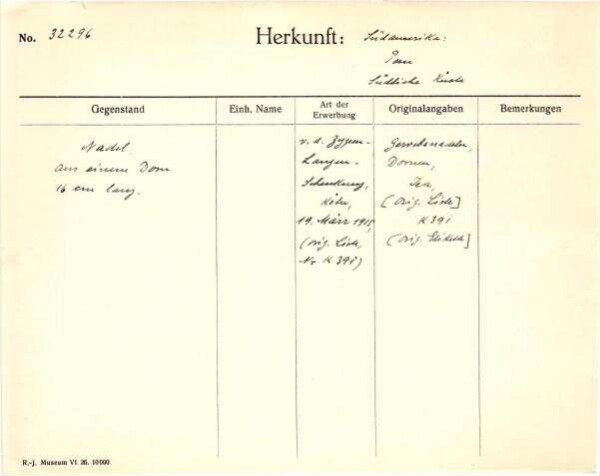 No. 32296
Herkunft: Südamerika:
Peru
Südliche Küste
Gegenstand
Einh. Name
Art der Erwerbung
Originalangaben
Bemerkungen
Nadel
aus einem Dorn
16 cm lang.
v. d. Zypen-
Langen-
Schenkung,
Köln,
19. März 1915,
(orig. Liste,
Nr K 39i)
Gewebenadeln,
Dornen,
Ica,
(orig. Liste]
K 39i
(orig. Etikette]
R.-J. Museum VI. 26. 10000